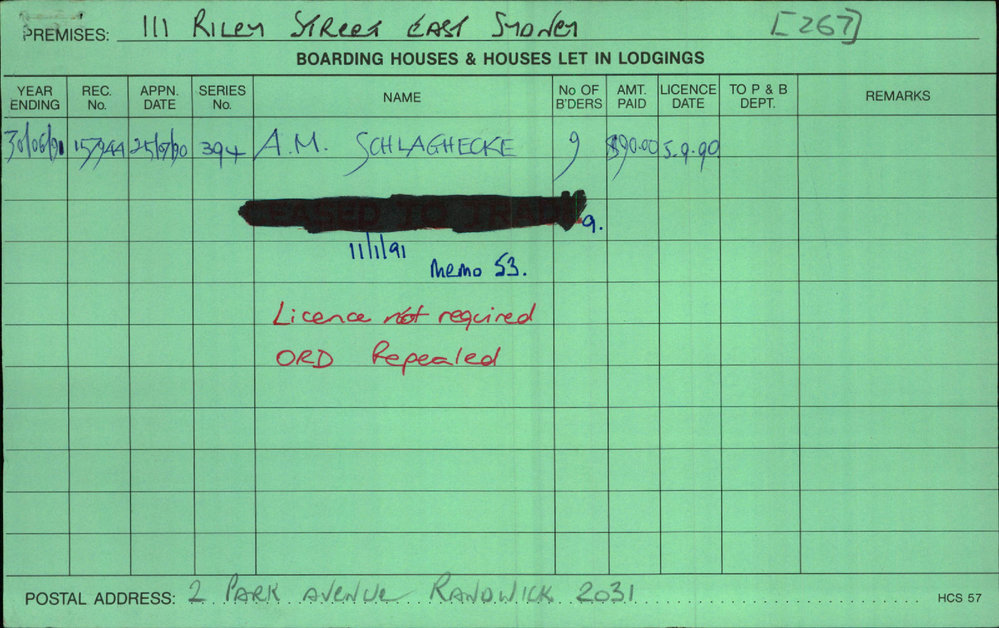 PREMISES: 111 RILEY STREET EAST SYDNEY [267]
BOARDING HOUSES & HOUSES LET IN LODGINGS
YEAR ENDING REC. No. APPN. DATE SERIES No. NAME No OF B'DERS AMT. PAID LICENCE DATE TO P & B DEPT. REMARKS
30/06/91 157944 25/07/90 394 A.M. SCHLAGHECKE 9 $90.00 5.9.90
9.
11/1/91
Memo 53.
Licence not required
ORD Repealed
POSTAL ADDRESS: 2 PARK AVENUE RANDWICK 2031 HCS 57